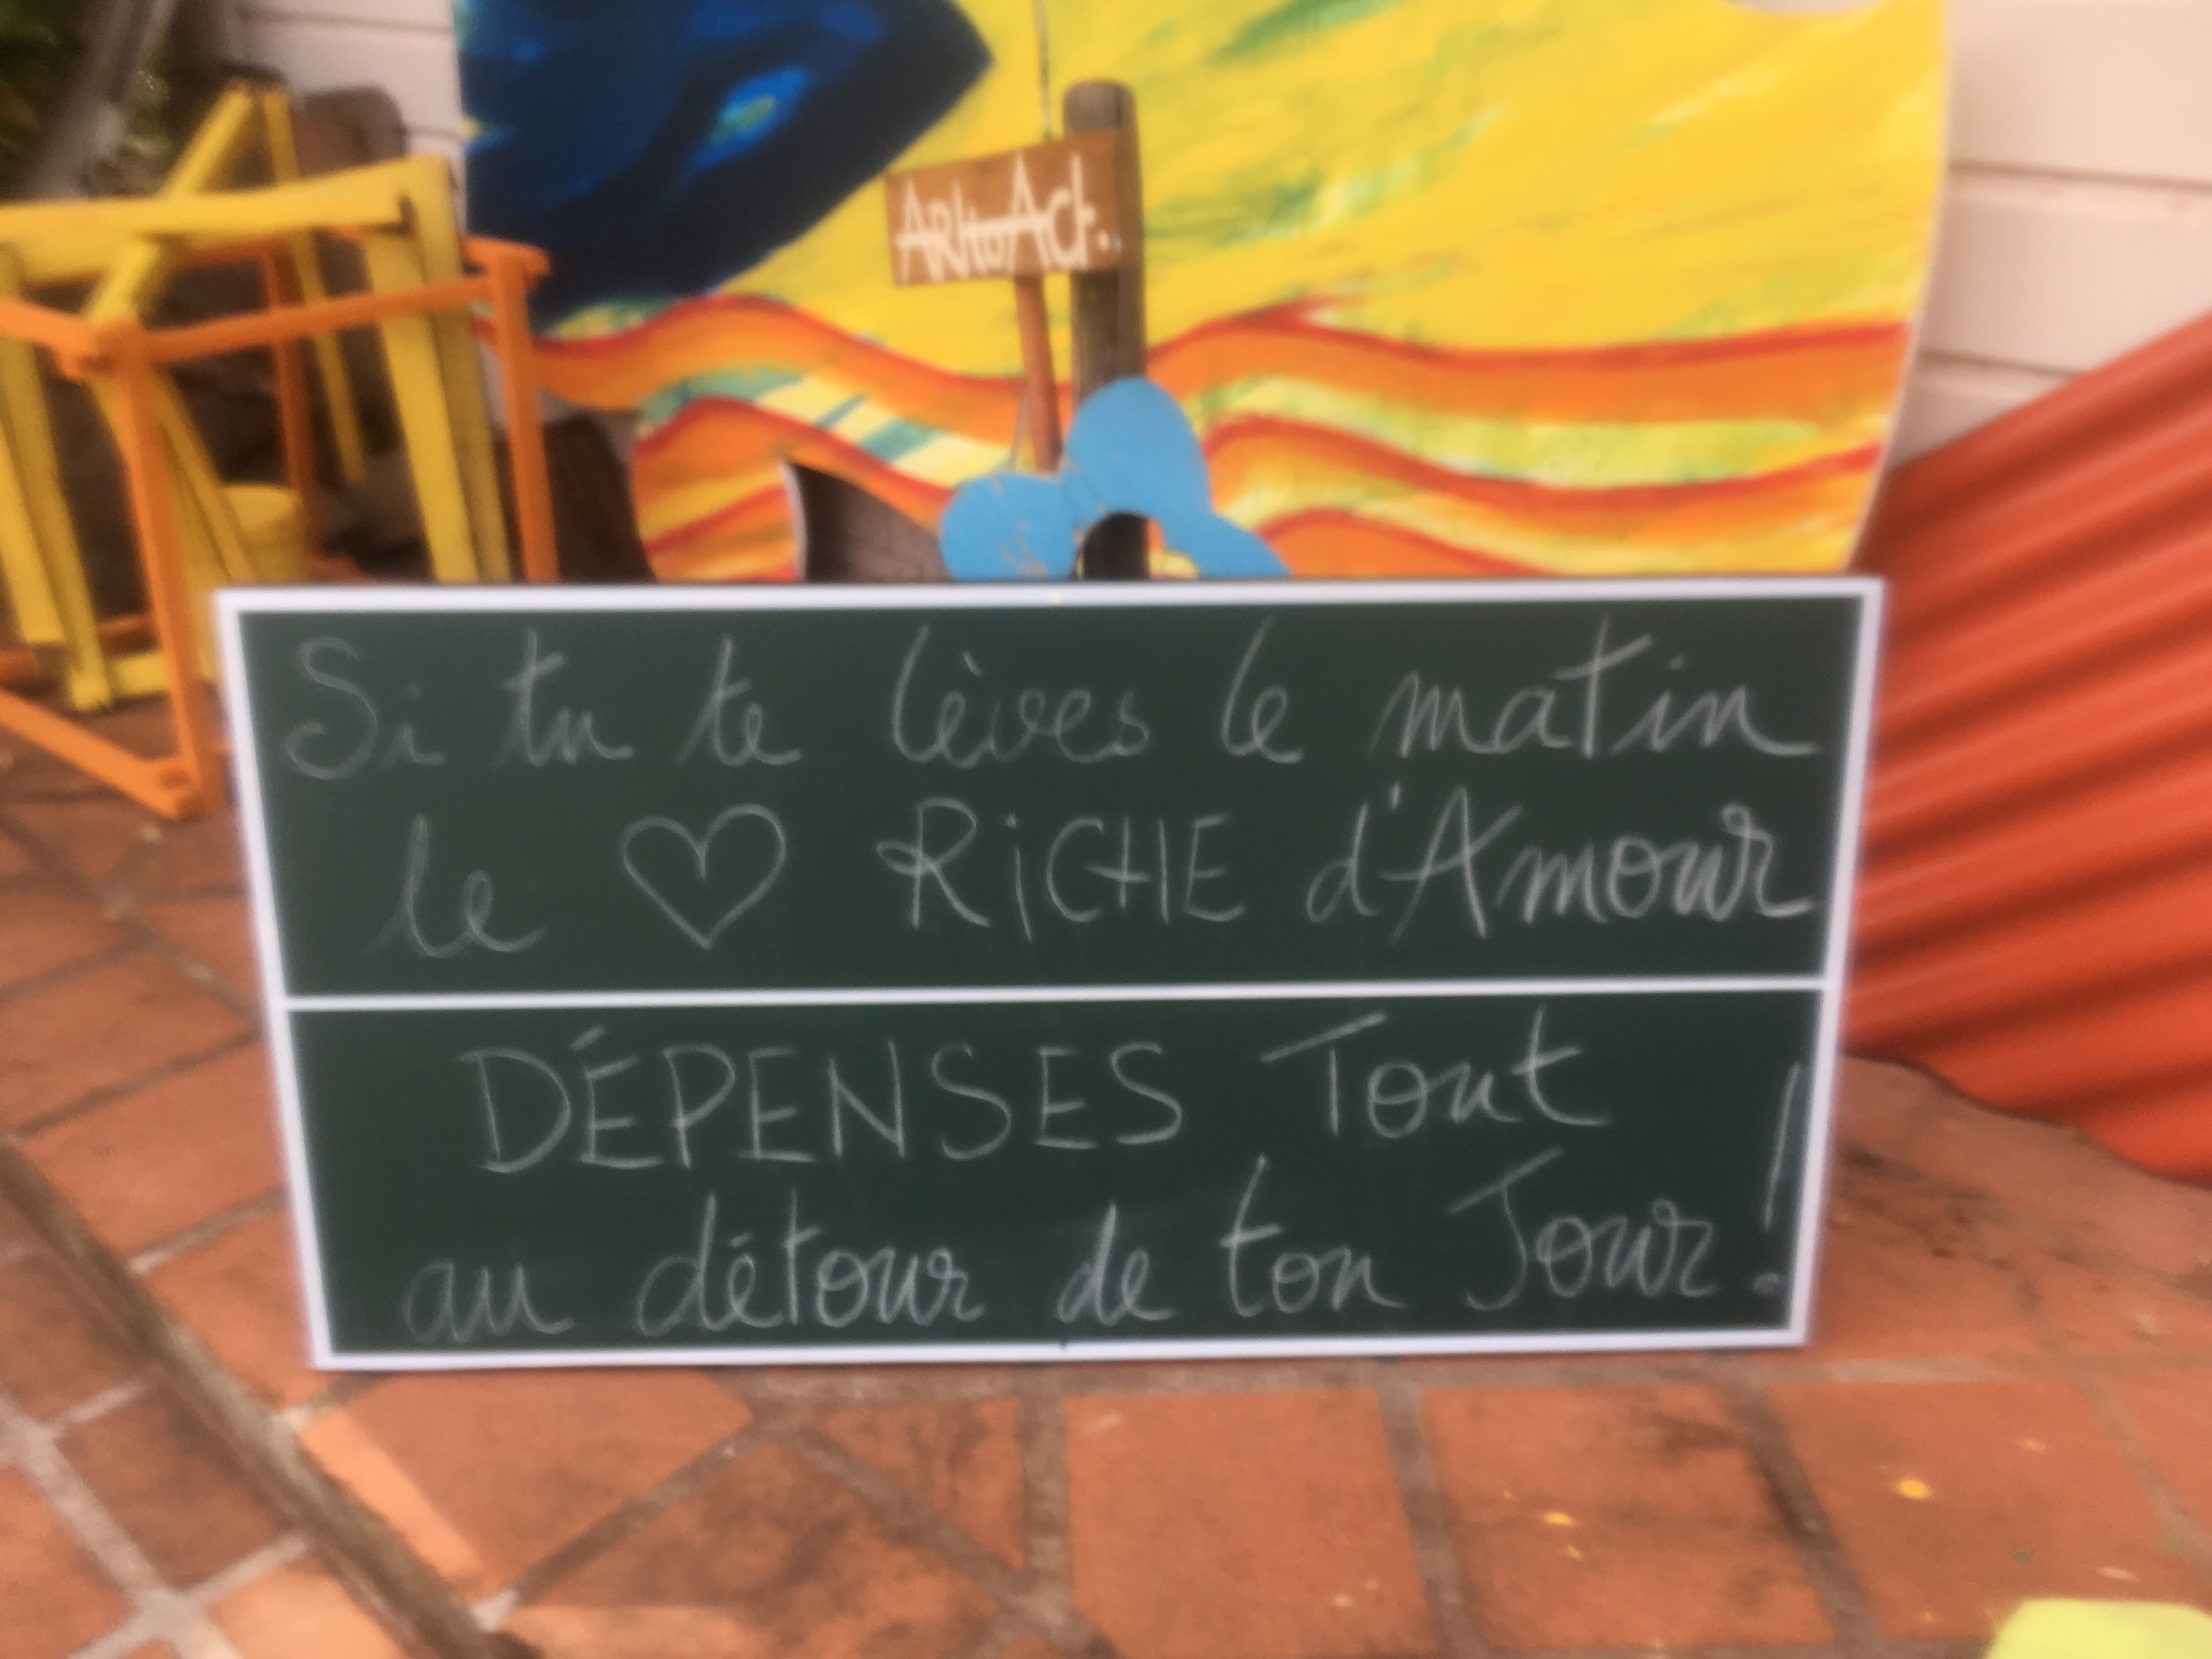 ARttoAct.
Si tu te lèves le matin
le ♡ RiCHE d'Amour
DÉPENSES Tout
au détour de ton Jour !